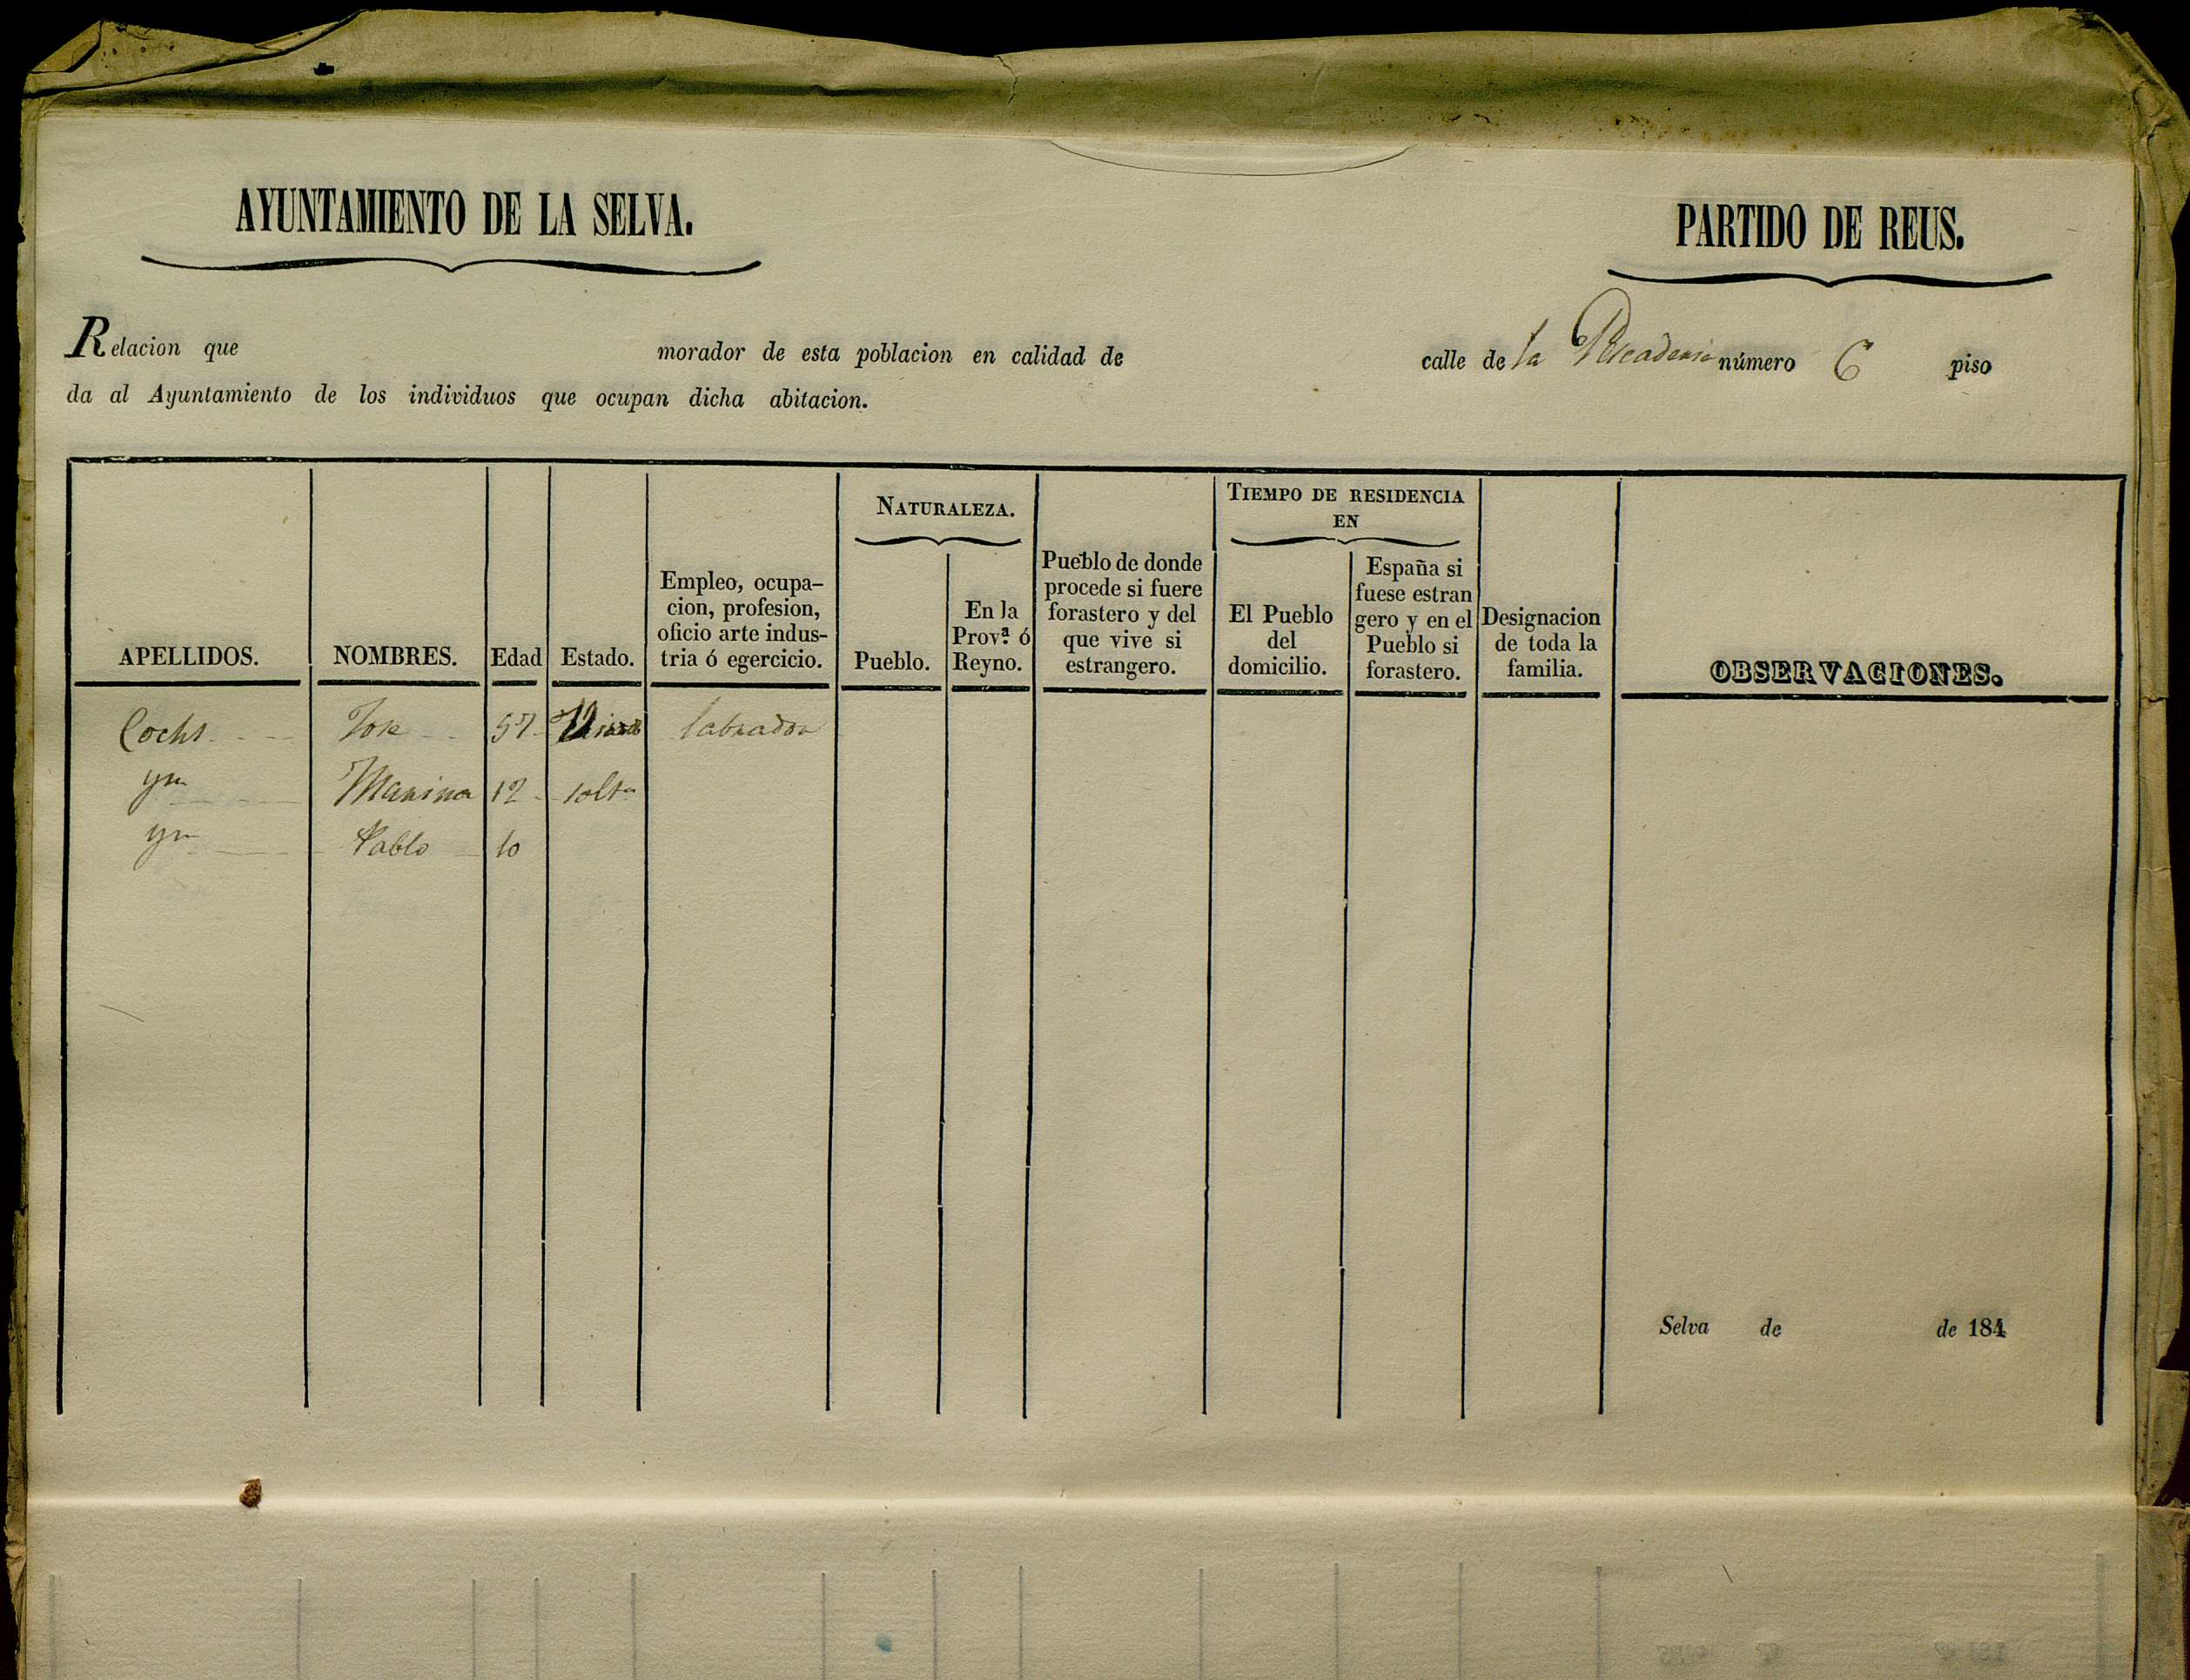 AYUNTAMIENTO DE LA SELVA.
PARTIDO DE REUS.
Relacion que morador de esta poblacion en calidad de calle de la Pescaderia número 6 piso
da al Ayuntamiento de los individuos que ocupan dicha abitacion.
APELLIDOS.
NOMBRES.
Edad
Estado.
Empleo, ocupa-
cion, profesion,
oficio arte indus-
tria ó egercicio.
NATURALEZA.
Pueblo.
En la
Prov.ª ó
Reyno.
Pueblo de donde
procede si fuere
forastero y del
que vive si
estrangero.
TIEMPO DE RESIDENCIA
EN
El Pueblo
del
domicilio.
España si
fuese estran
gero y en el
Pueblo si
forastero.
Designacion
de toda la
familia.
OBSERVACIONES.
Cochs Jose 57 labrador
yn Marina 12 solta
yn Pablo 10
Selva de de 184